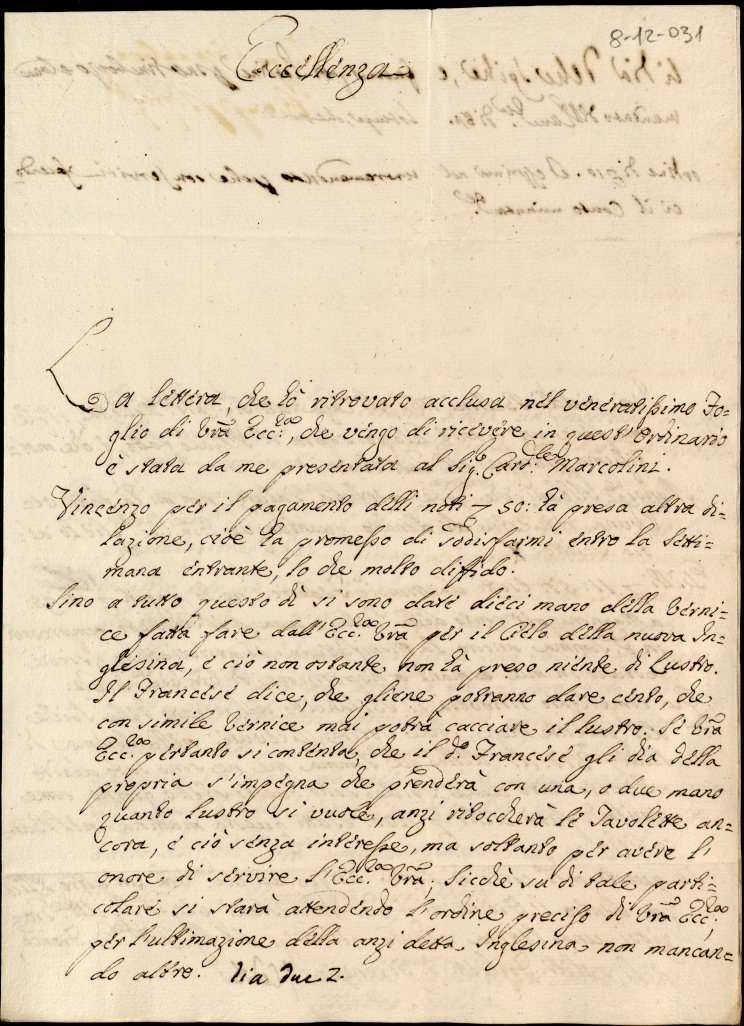 8-12-031
Eccellenza
La lettera, che hò ritrovato acclusa nel veneratissimo Fo-
glio di Vrã Ecc.za, che vengo di ricevere in quest'Ordinario
è stata da me presentata al Sig.e Card.le Marcolini.
Vincenzo per il pagamento delli noti 7 50: hà presa altra di-
lazione, cioè hà promesso di sodisfarmi entro la setti-
mana entrante, lo che molto diffido.
Sino a tutto questo dì si sono date dieci mano della Verni-
ce fatta fare dall'Ecc.za Vrã per il Cielo della nuova In-
glesina, e ciò non ostante non hà preso niente di Lustro.
Il Francese dice, che gliene potranno dare cento, che
con simile Vernice mai potrà cacciare il lustro. Se Vrã
Ecc.za pertanto si contenta, che il d.o Francese gli dia della
propria s'impegna che prenderà con una, o due mano
quanto lustro si vuole, anzi ritoccherà le Tavolette an-
cora, e ciò senza interesse, ma soltanto per avere l'
onore di servire l'Ecc.za Vrã; Sicchè su di tale parti-
colare si starà attendendo l'ordine preciso di Vrã Ecc.za,
per l'ultimazione della anzi detta Inglesina, non mancan-
do altro. lia due 2.